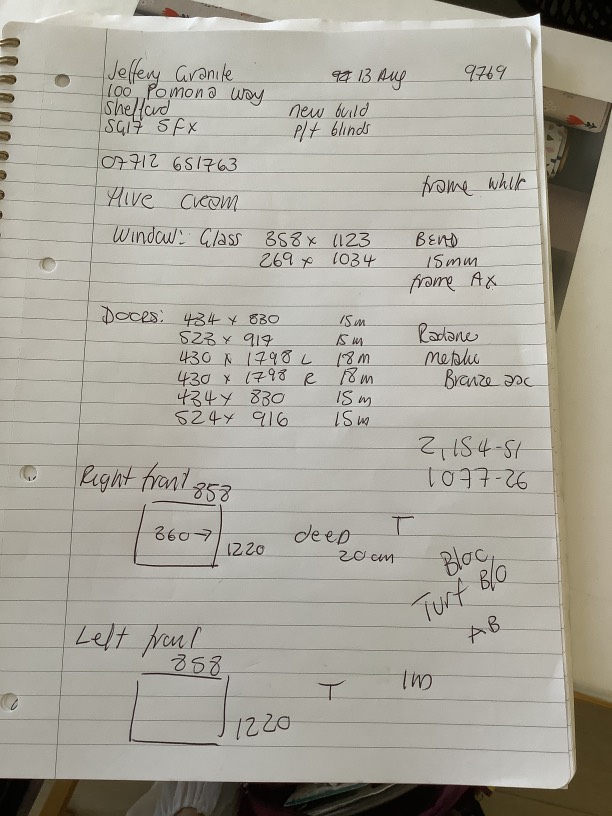 Jeffery Granite 13 Aug 9769
100 Pomona Way
Shefford new build
SG17 5FX P/t blinds
07712 651763
frame white
Hive Cream
Window: Glass 858 x 1123 BEND
269 x 1034 15mm
frame Ax
Doces: 434 x 830 15m
523 x 917 15m Radane
430 x 1798 L 18m Metalic
430 x 1798 R 18m Bronze
434 x 830 15m
524 x 916 15m
2,154-51
1077-26
Right front 858
860→ 1220 deep 20cm T
Bloc
Turf B/O
AB
Left front
858
T 1m
1220